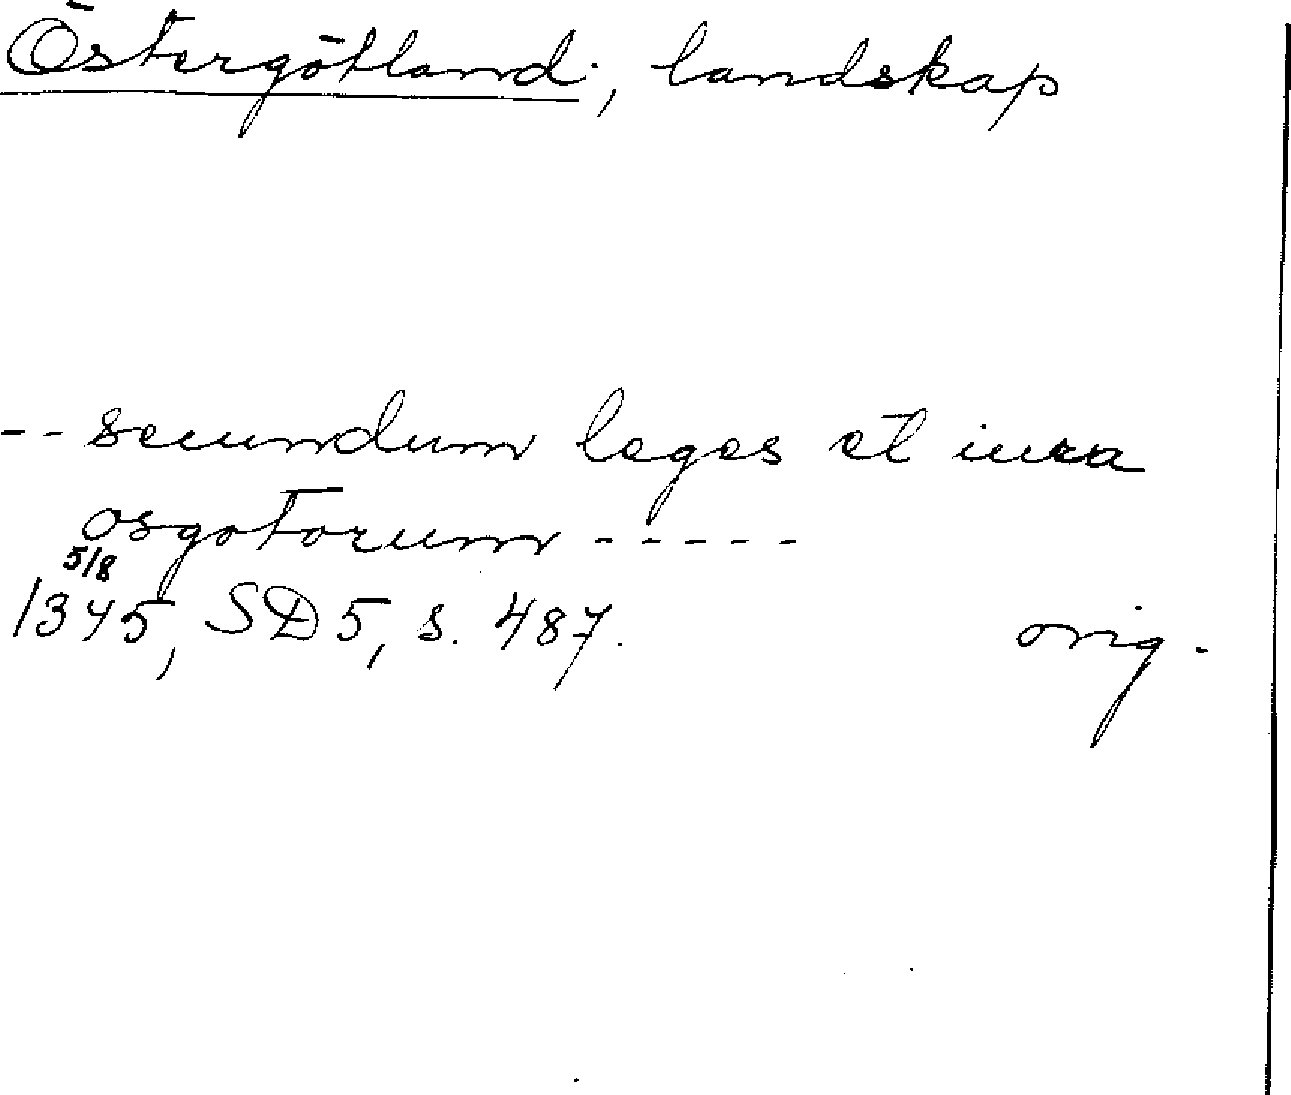 Östergötland, landskap
-- secundum leges et iura
osgotorum -----
5/8
1345, SD 5, s. 487. orig.